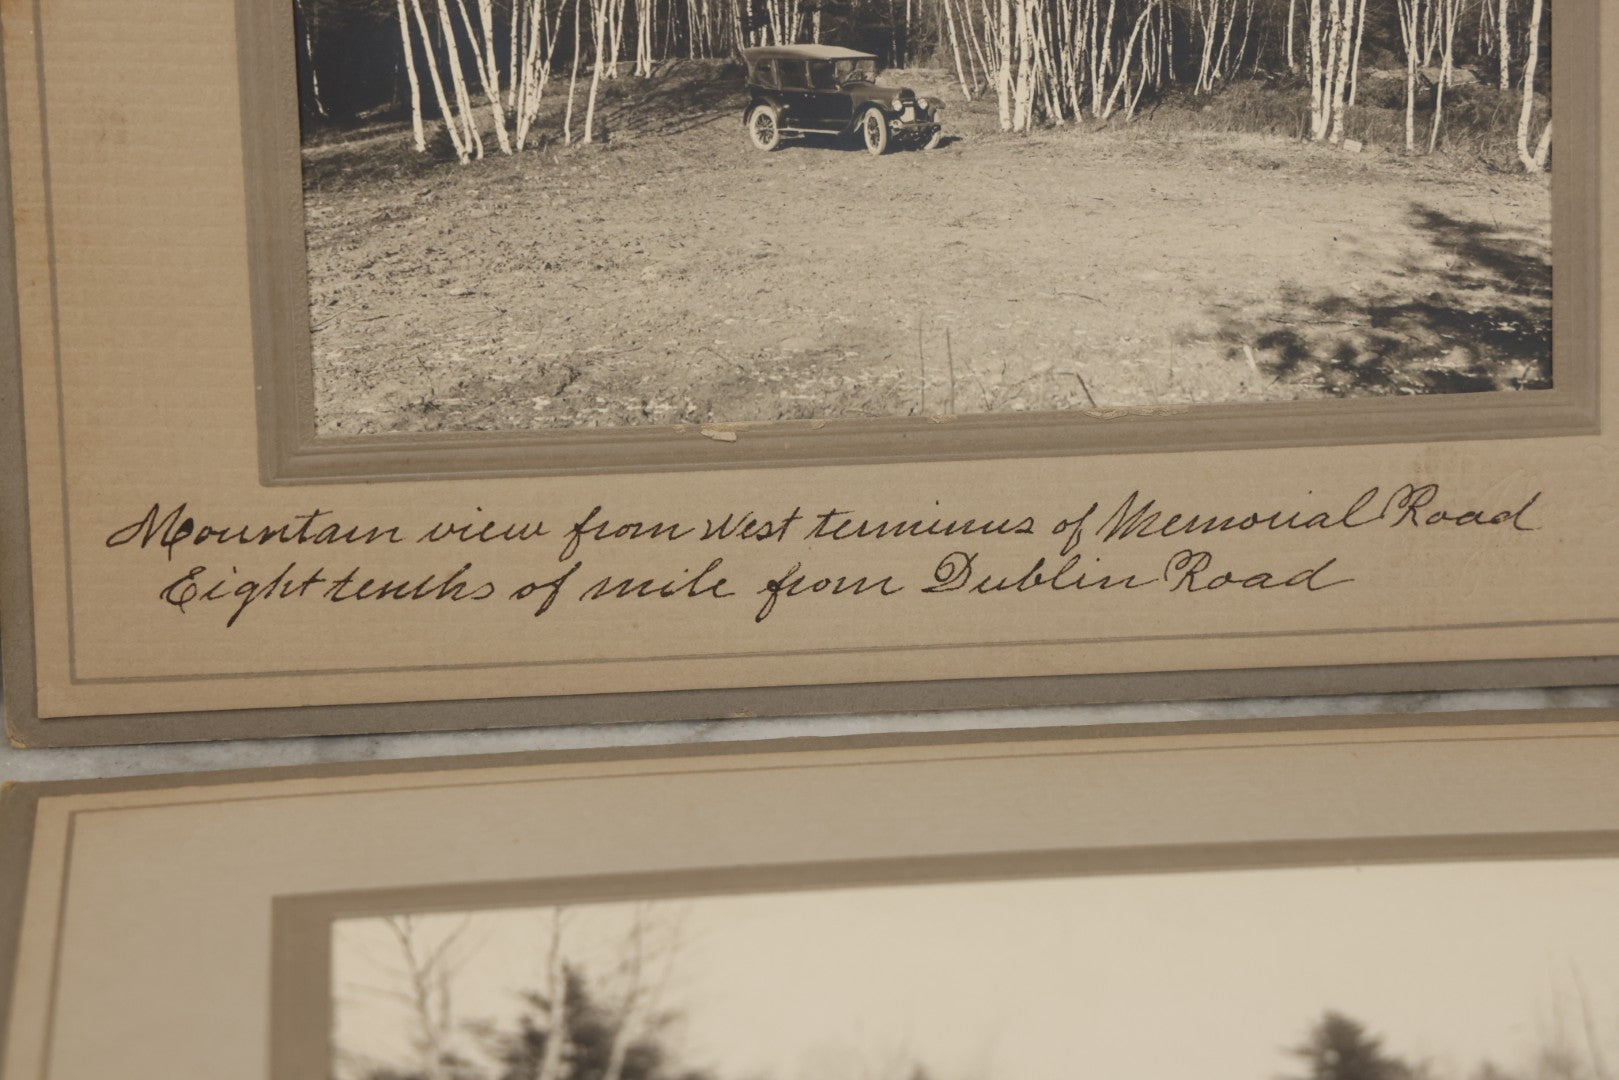 Mountain view from West terminus of Memorial Road
Eight tenths of mile from Dublin Road